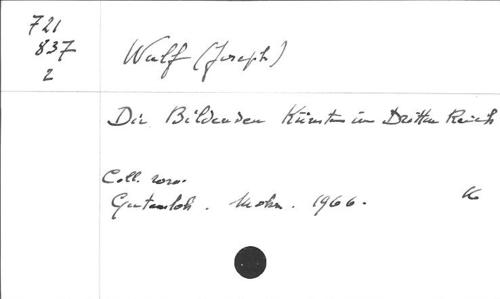 721
837
2
Wulf (Joseph)
Die Bildenden Künste im Dritten Reich
Coll. roro.
Gutersloh. Mohn. 1966.
K